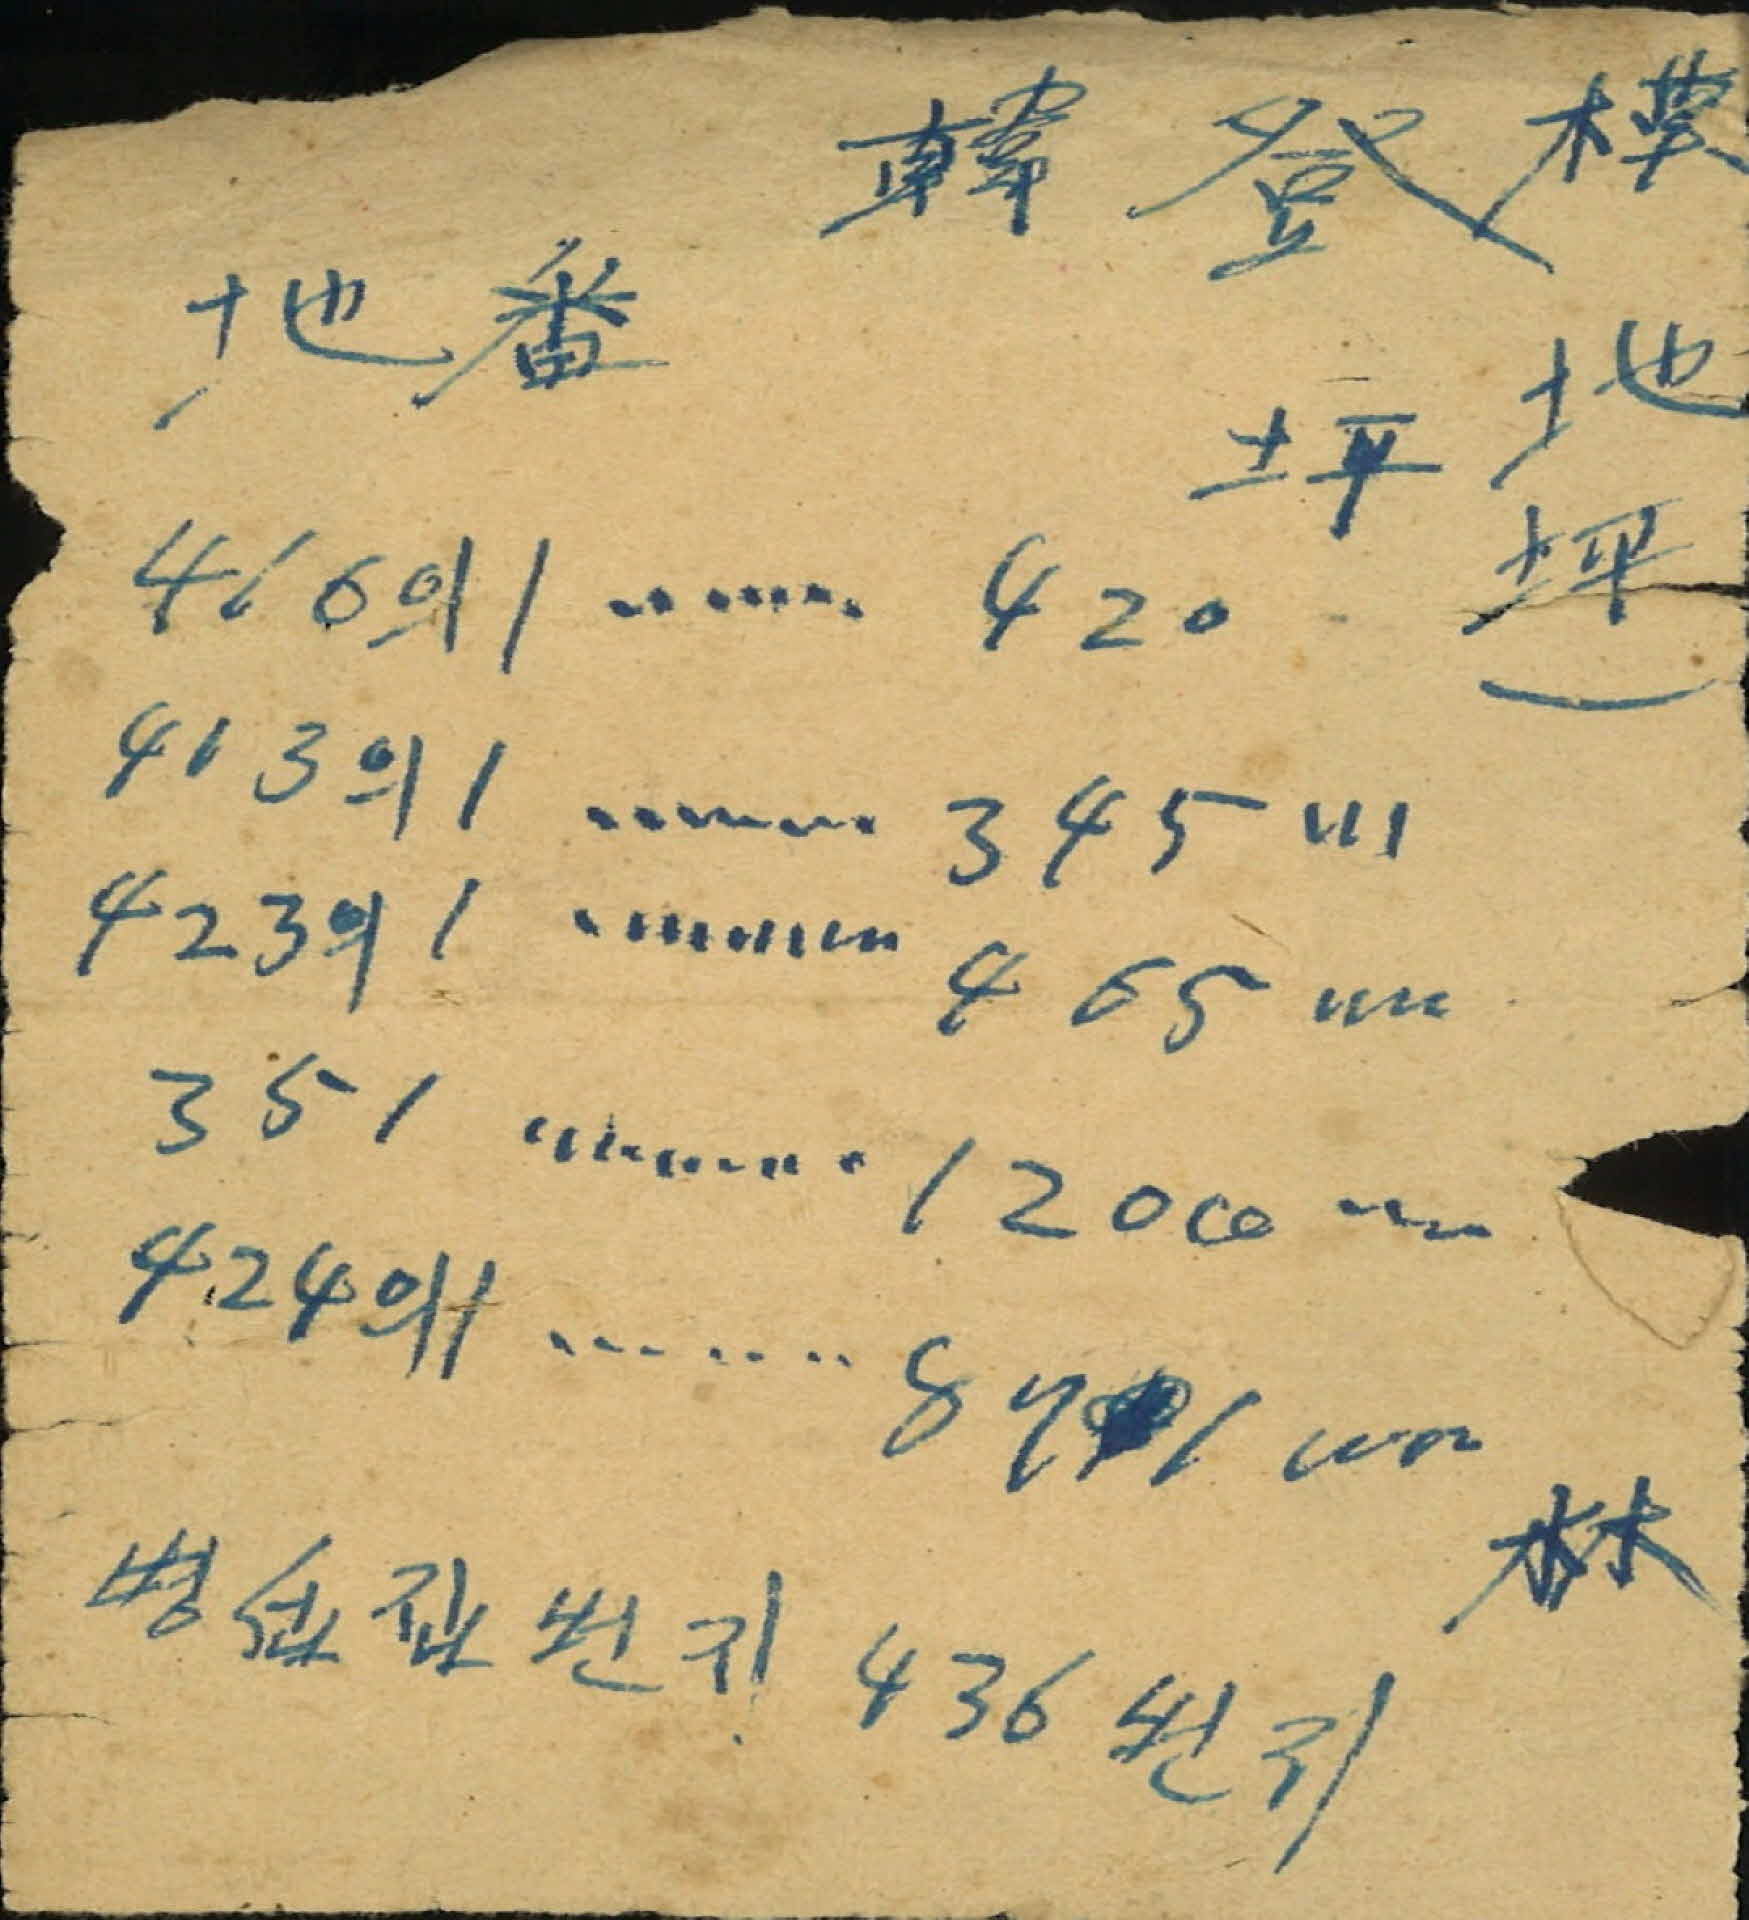 韓登模
地番
地坪
坪
416의1 ...... 420
413의1 ........ 345 〃
423의1 ........ 465 〃
351 ........ 12000 〃
424의1 ....... 871 〃
林
번지 436번지